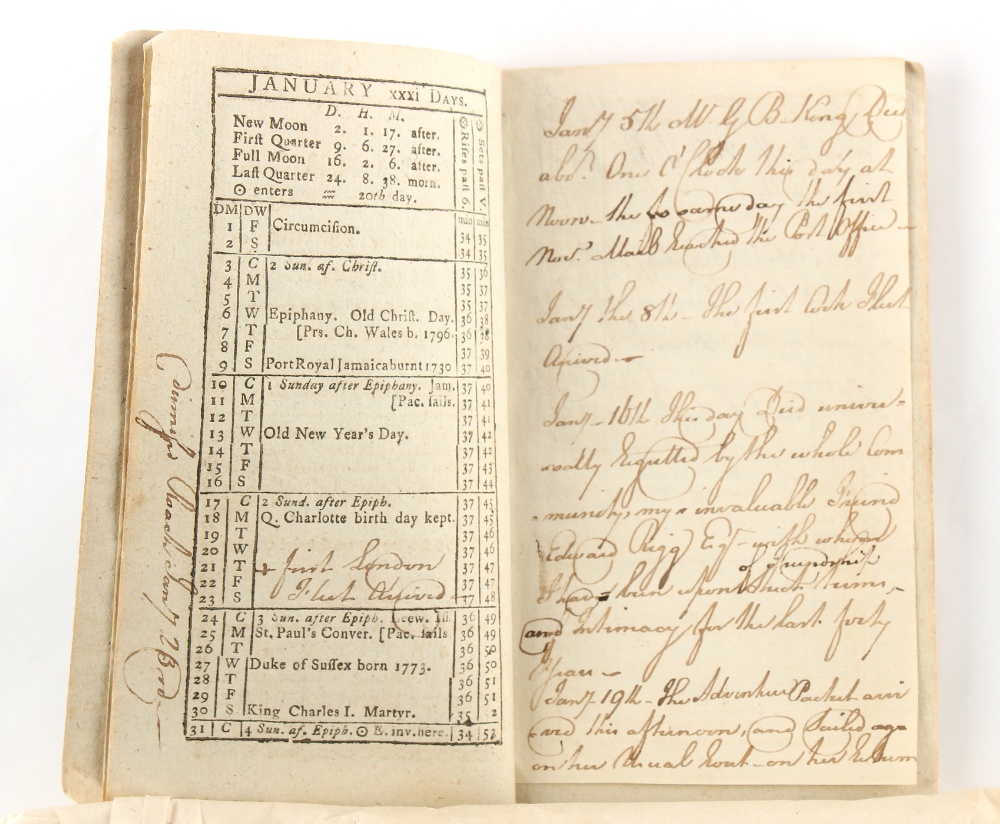 JANUARY xxxi Days.
D. H. M.
New Moon 2. 1. 17. after.
Firſt Quarter 9. 6. 27. after.
Full Moon 16. 2. 6. after.
Laſt Quarter 24. 8. 38. morn.
☉ enters ♒ 20th day.
☉ Riſes paſt 6.
☉ Sets paſt V.
DM DW min min
1 F Circumciſion. 34 35
2 S 34 35
3 C 2 Sun. af. Chriſt. 35 36
4 M 35 37
5 T 35 37
6 W Epiphany. Old Chriſt. Day. 36 38
7 T [Prs. Ch. Wales b. 1796. 36 38
8 F 37 39
9 S Port Royal Jamaica burnt 1730 37 40
10 C 1 Sunday after Epiphany. Jam. 37 40
11 M [Pac. ſails. 37 41
12 T 37 41
13 W Old New Year's Day. 37 42
14 T 37 42
15 F 37 43
16 S 37 44
17 C 2 Sund. after Epiph. 37 45
18 M Q. Charlotte birth day kept. 37 45
19 T 37 46
20 W 37 46
21 T + first London 37 47
22 F Fleet Arived 37 47
23 S 37 48
24 C 3 Sun. after Epiph. Leew. Iſl. 36 49
25 M St. Paul's Conver. [Pac. ſails 36 49
26 T 36 50
27 W Duke of Suſſex born 1773. 36 50
28 T 36 51
29 F 36 51
30 S King Charles I. Martyr. 35 2
31 C 4 Sun. af. Epiph. ☉ E. inv. here. 34 53
Jany 23rd
Jany 5th Mr G B King Died
abt. One O'Clock this day at
Noon - the same day the first
Novr. Mail reached the Post Office -
Jany the 8th - The first Cork Fleet
Arived -
Jany - 16th This day Died univer=
=sally Regretted by the whole Com
=munity, my invaluable Friend
Edward Rigg Esqr - with whom
of Friendship
I have been upon such terms
and Intimacy for the last forty
Years -
Jany 19th - The Adventure Packet arri
=ved this afternoon, and Sailed ago
on her Usual Rout - on her Return